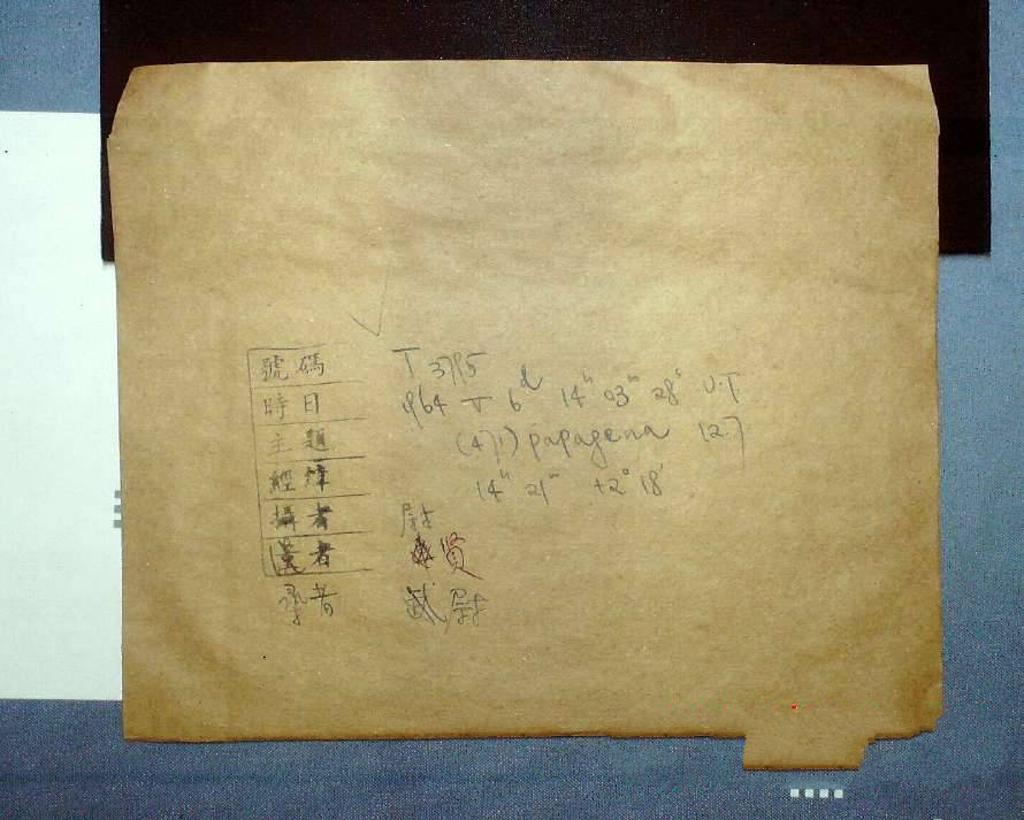 號碼 T 3795
時日 1964 V 6d 14h 03m 28s U.T
主題 (471) papagena 12.7
經緯 14h 21m +2° 18'
攝者 尉
者 賢
者 武尉